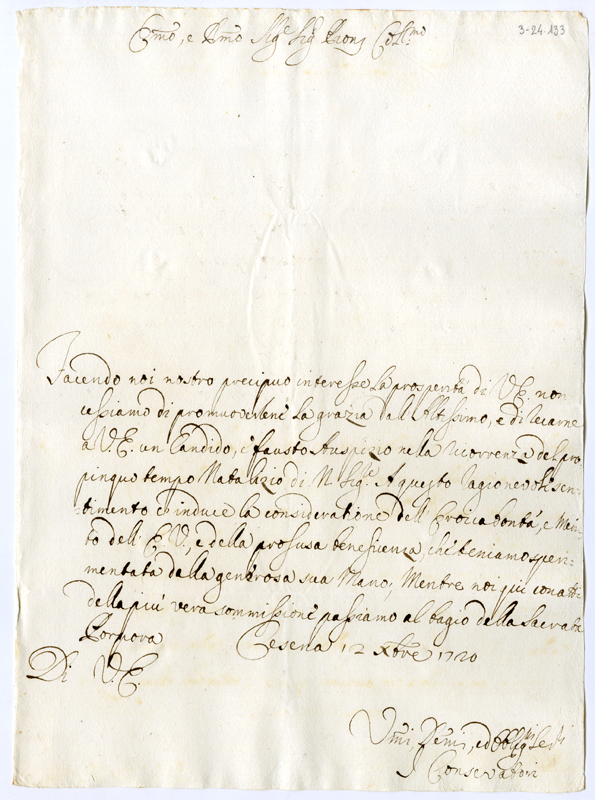 3-24.133
Em̃o, e Rmõ Sig.e Sig.e Prone Col.mo
Facendo noi nostro precipuo interesse la prosperità di V.E. non
cessiamo di promuoverlene la grazia dall'Altissimo, e di recarne
a V.E. un Candido, e fausto Auspizio nella ricorrenza del pro
pinquo tempo Natalizio di N. Sig.re A questo ragionevole sen=
timento c'induce la consideratione dell'Eroica bontà, e Meri=
to dell'E.V., e della profusa beneficenza, che teniamo speri=
mentata dalla generosa sua Mano, Mentre noi qui con atti
della più vera sommissione passiamo al bagio della Sacrata
Porpora Cesena 12 Xbre 1720
Di V.E.
Umi, Demi, ed Obbligmi Servi
Conservatori